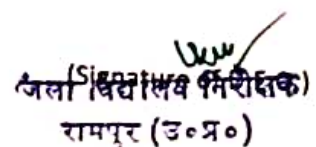 (Signature
जिला विद्यालय निरीक्षक)
रामपुर (उ०प्र०)